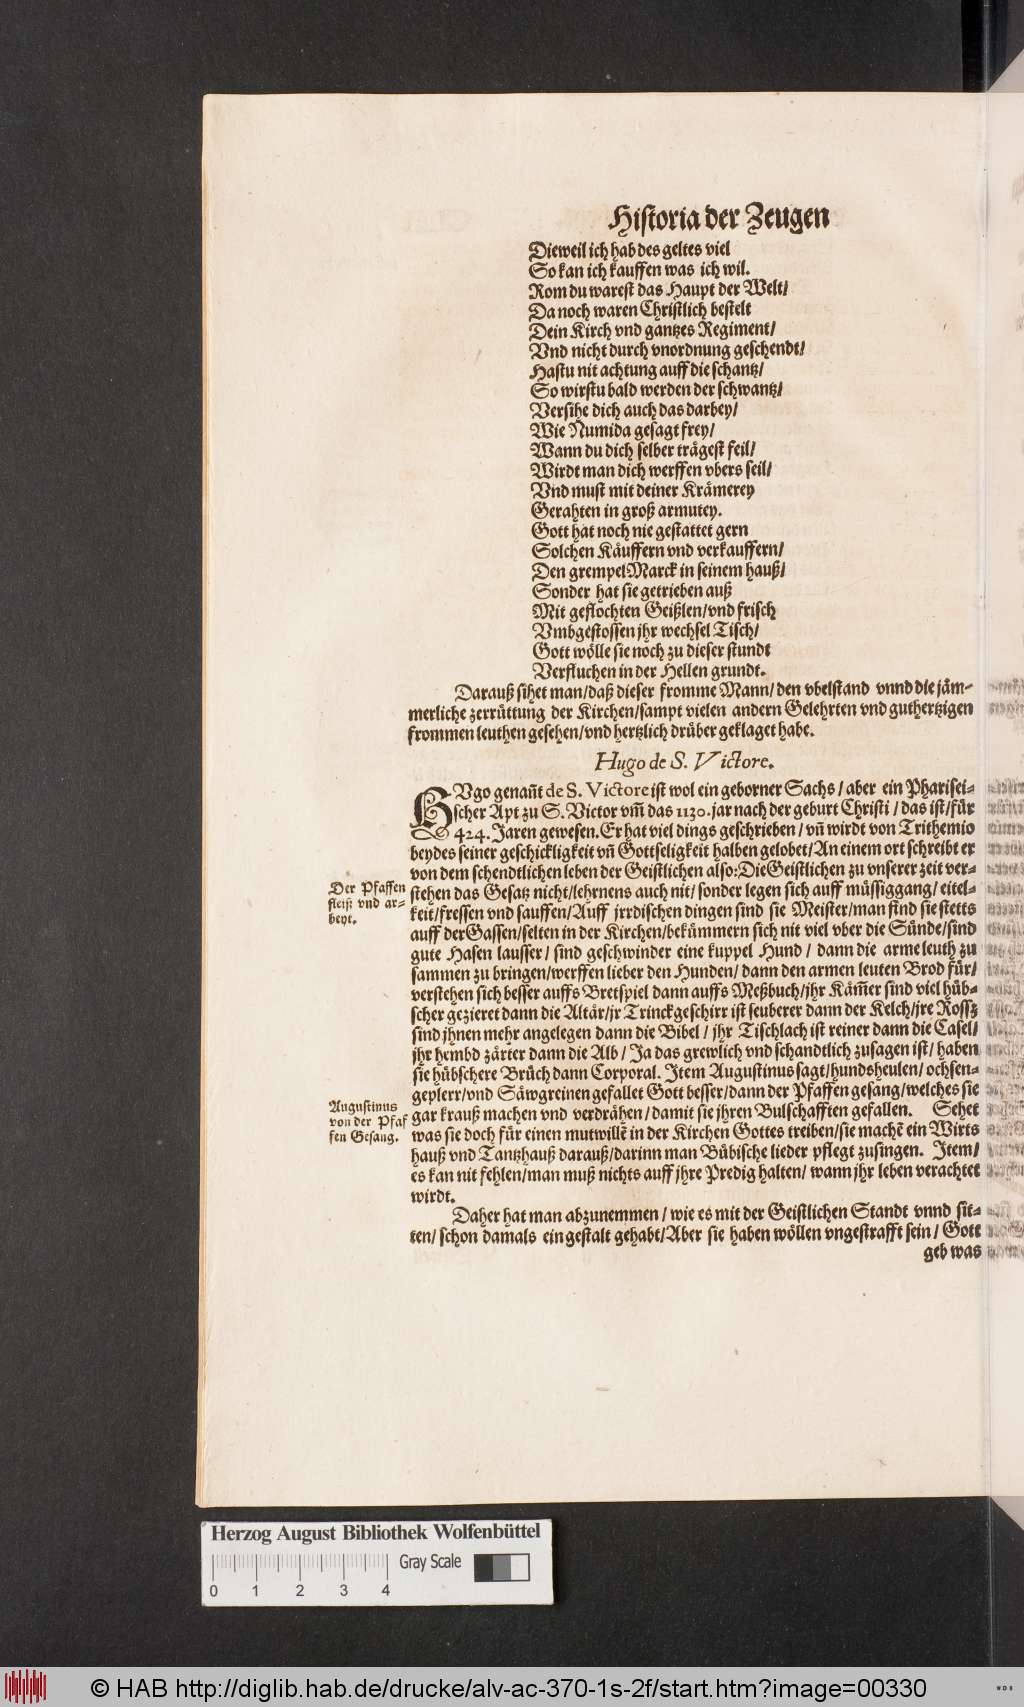 Historia der Zeugen
Dieweil ich hab des geltes viel
So kan ich kauffen was ich wil.
Rom du warest das Haupt der Welt/
Da noch waren Christlich bestelt
Dein Kirch vnd gantzes Regiment/
Vnd nicht durch vnordnung geschendt/
Hastu nit achtung auff die schantz/
So wirstu bald werden der schwantz/
Versihe dich auch das darbey/
Wie Numida gesagt frey/
Wann du dich selber trägest feil/
Wirdt man dich werffen vbers seil/
Vnd must mit deiner Krämerey
Gerahten in groß armutey.
Gott hat noch nie gestattet gern
Solchen Käuffern vnd verkauffern/
Den grempelMarck in seinem hauß/
Sonder hat sie getrieben auß
Mit geflochten Geißlen/vnd frisch
Vmbgestossen jhr wechsel Tisch/
Gott wölle sie noch zu dieser stundt
Verfluchen in der Hellen grundt.
Darauß sihet man/daß dieser fromme Mann/den vbelstand vnnd die jäm-
merliche zerrüttung der Kirchen/sampt vielen andern Gelehrten vnd guthertzigen
frommen leuthen gesehen/vnd hertzlich drüber geklaget habe.
Hugo de S. Victore.
HVgo genañt de S. Victore ist wol ein geborner Sachs/aber ein Pharisei-
scher Apt zu S. Victor vm̃ das 1130. jar nach der geburt Christi/das ist/für
424. Jaren gewesen. Er hat viel dings geschrieben/vñ wirdt von Trithemio
beydes seiner geschickligkeit vñ Gottseligkeit halben gelobet/An einem ort schreibt er
von dem schendtlichen leben der Geistlichen also: Die Geistlichen zu vnserer zeit ver-
Der Pfaffen
fleiß vnd ar-
beyt.
stehen das Gesatz nicht/lehrnens auch nit/sonder legen sich auff müssiggang/eitel-
keit/fressen vnd sauffen/Auff jrrdischen dingen sind sie Meister/man find sie stetts
auff der Gassen/selten in der Kirchen/bekümmern sich nit viel vber die Sünde/sind
gute Hasen lausser/sind geschwinder eine kuppel Hund/dann die arme leuth zu
sammen zu bringen/werffen lieber den Hunden/dann den armen leuten Brod für/
verstehen sich besser auffs Bretspiel dann auffs Meßbuch/jhr Kam̃er sind viel hüb-
scher gezieret dann die Altär/jr Trinckgeschirr ist seuberer dann der Kelch/jre Rossz
sind jhnen mehr angelegen dann die Bibel/jhr Tischlach ist reiner dann die Casel/
jhr hembd zärter dann die Alb/Ja das grewlich vnd schandtlich zusagen ist/haben
sie hübschere Brüch dann Corporal. Item Augustinus sagt/hundsheulen/ochsen-
geplerr/vnd Säwgreinen gefallet Gott besser/dann der Pfaffen gesang/welches sie
Augustinus
von der Pfaf
fen Gesang.
gar krauß machen vnd verdrähen/damit sie jhren Bulschafften gefallen. Sehet
was sie doch für einen mutwillẽ in der Kirchen Gottes treiben/sie machẽ ein Wirts
hauß vnd Tantzhauß darauß/darinn man Bübische lieder pflegt zusingen. Item/
es kan nit fehlen/man muß nichts auff jhre Predig halten/wann jhr leben verachtet
wirdt.
Daher hat man abzunemmen/wie es mit der Geistlichen Standt vnnd sit-
ten/schon damals ein gestalt gehabt/Aber sie haben wöllen vngestrafft sein/Gott
geb was
Herzog August Bibliothek Wolfenbüttel
Gray Scale
0 1 2 3 4
© HAB http://diglib.hab.de/drucke/alv-ac-370-1s-2f/start.htm?image=00330